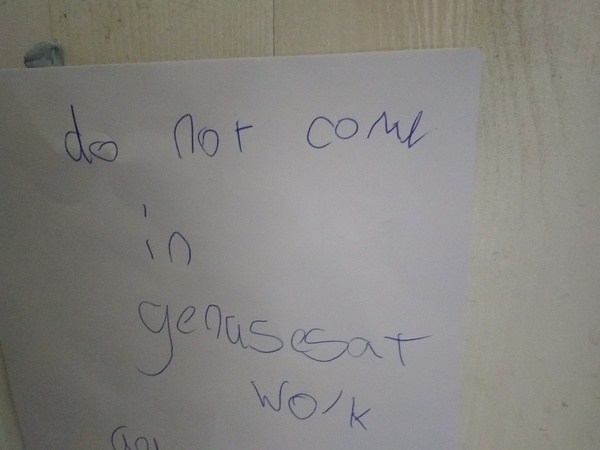 do not come
in
genusesat
work